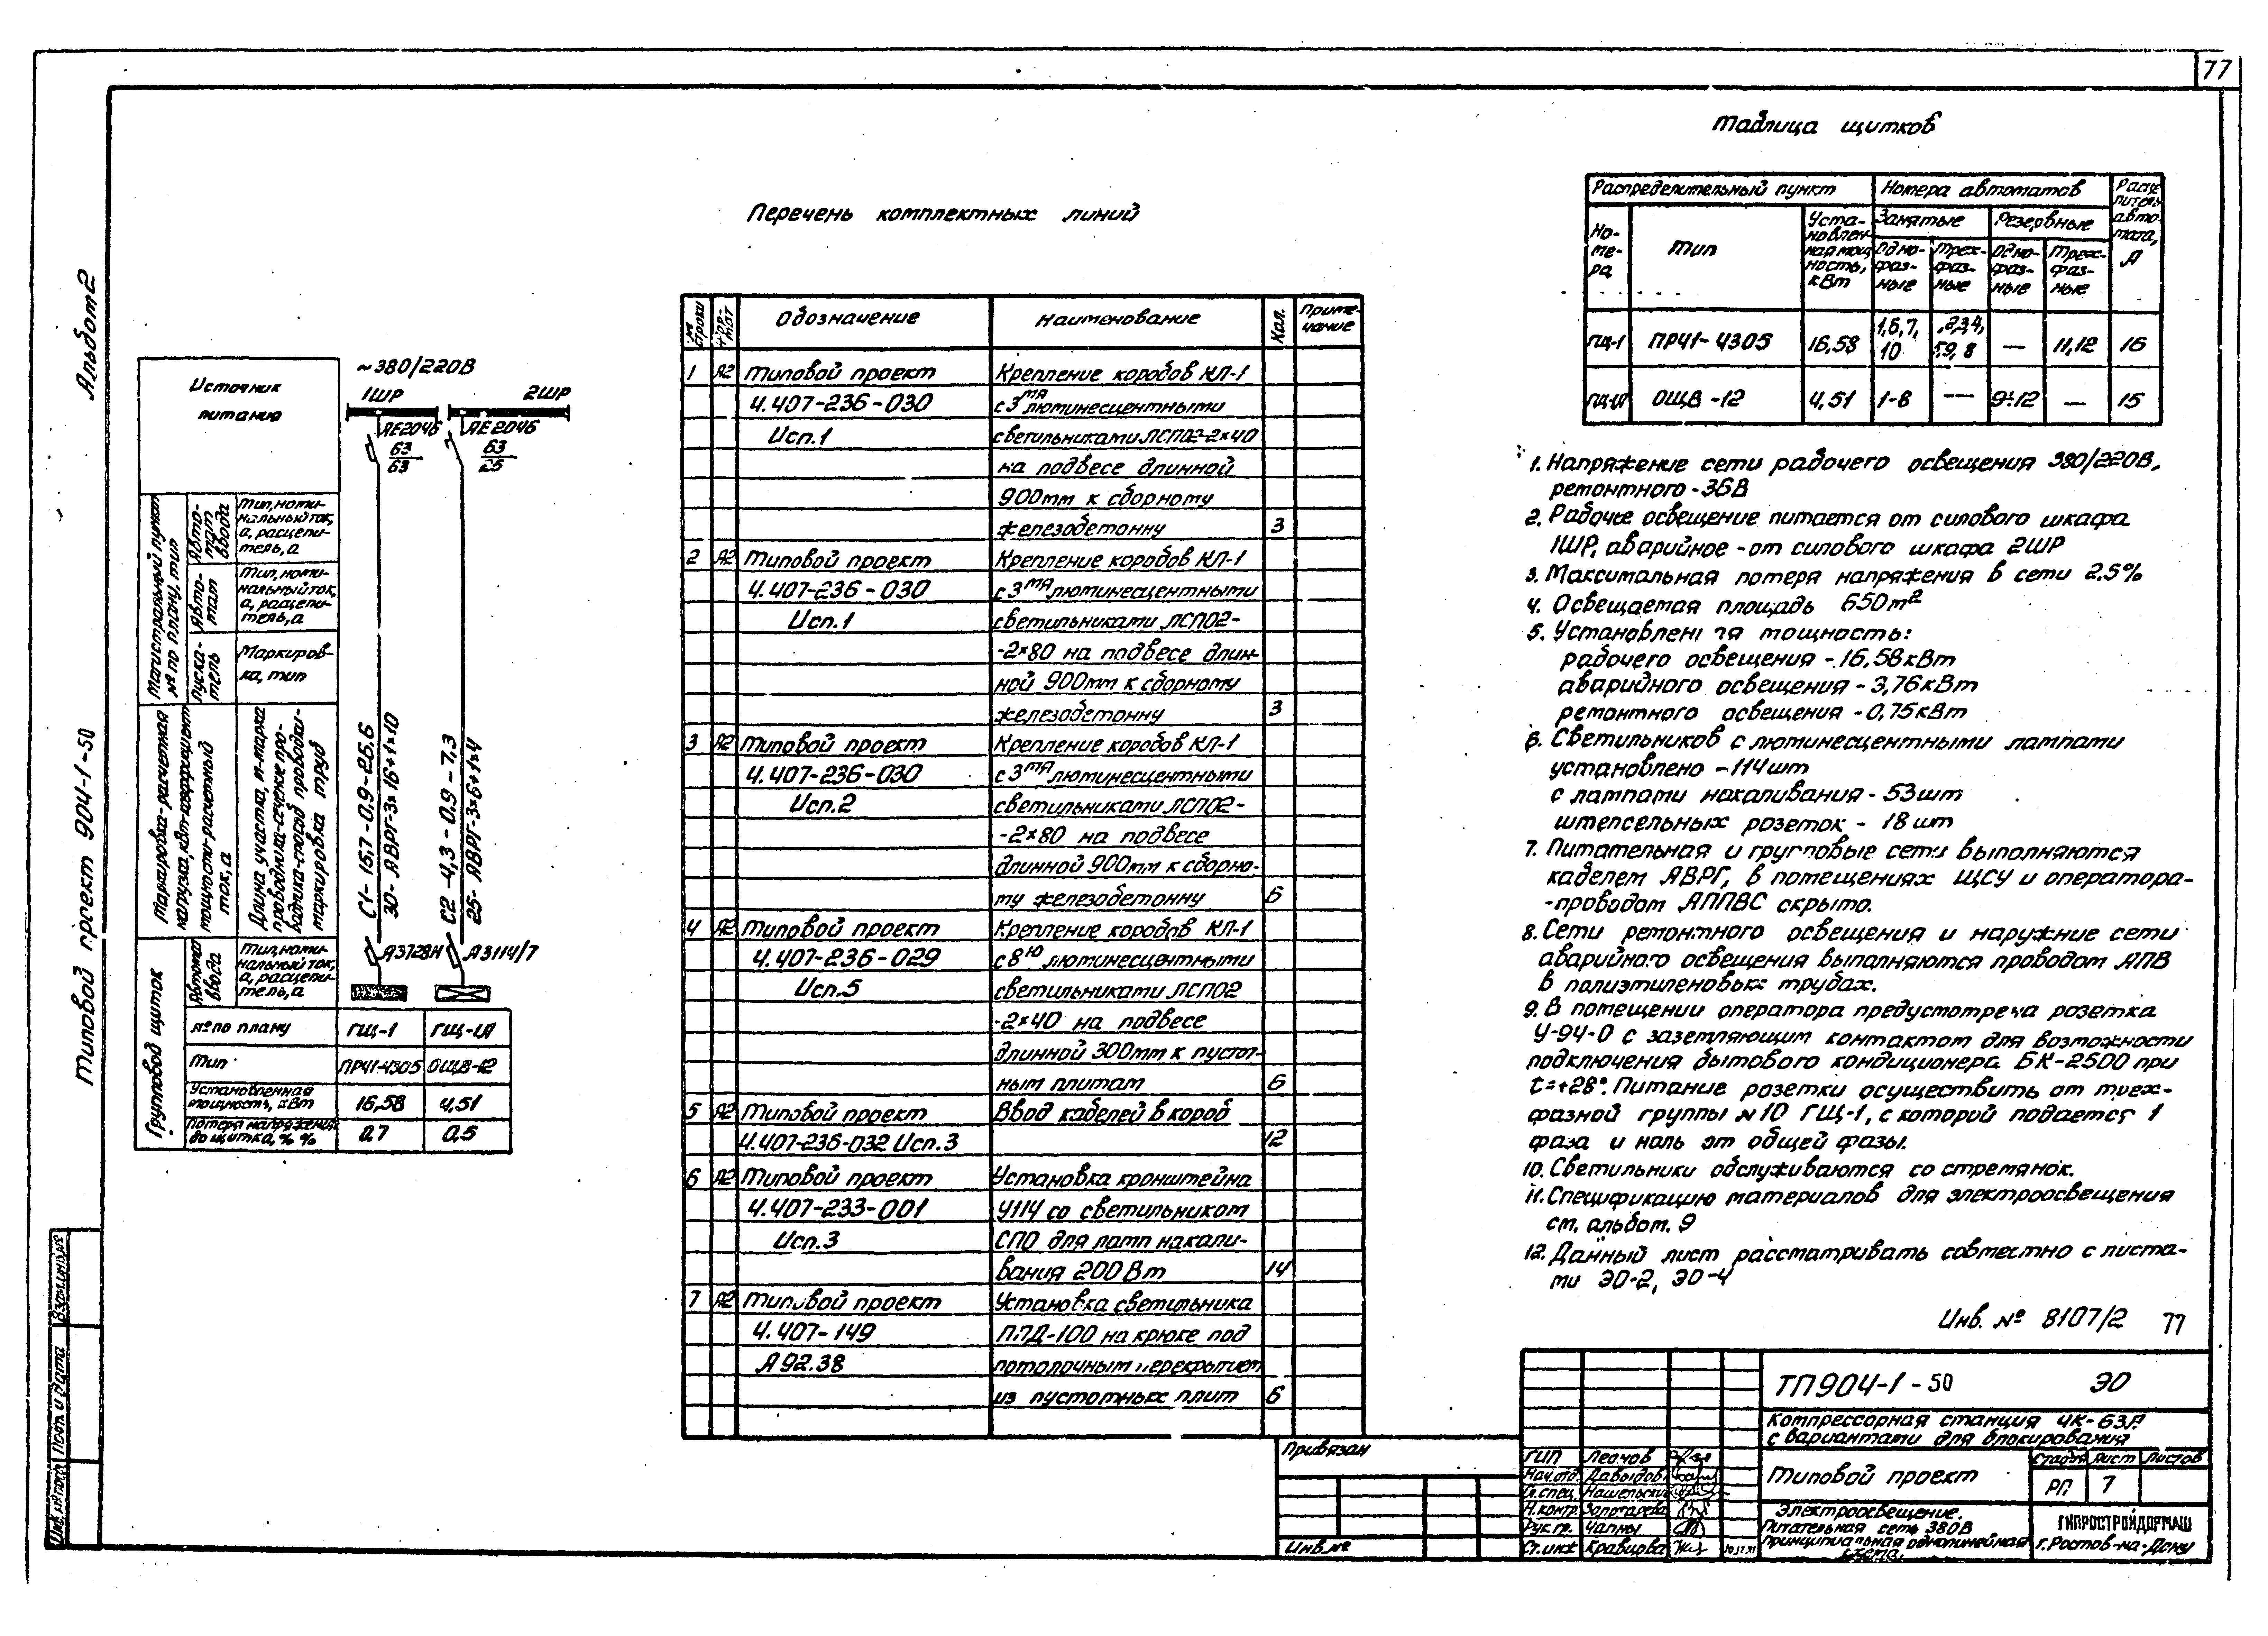 77
Альбом 2
Типовой проект 904-1-50
Источник
питания
~380/220В
1ШР
2ШР
АЕ2046
63
63
АЕ2046
63
25
Магистральный пункт
№ по плану, тип
Авто-
мат
ввода
Тип, номи-
нальный ток,
а, расцепи-
тель, а
Авто-
мат
Тип, номи-
нальный ток,
а, расцепи-
тель, а
Пуска-
тель
Маркиров-
ка, тип
Маркировка-расчетная
нагрузка, квт-коэффициент
мощности-расчетный
ток, а
Длина участка, м-марка
проводника-сечение про-
водника-способ проводки-
маркировка труб
С1- 15,7-0,9-25.6
30- АВРГ-3×16+1×10
С2 -4,3-0.9-7,3
25- АВРГ-3×6+1×4
Групповой щиток
Автомат
ввода
Тип, номи-
нальный ток,
а, расцепи-
тель, а
А3728Н
А3114/7
№ по плану
ГЩ-1
ГЩ-1А
Тип
ПР41-4305
ОЩВ-12
Установленная
мощность, кВт
16,58
4,51
Потеря напряжения
до щитка, % %
0,7
0,5
Перечень комплектных линий
№ строки
Фор-мат
Обозначение
Наименование
Кол.
Приме-
чание
1 А2 Типовой проект Крепление коробов КЛ-1
4.407-236-030 с 3мя люминесцентными
Исп.1 светильниками ЛСП02-2×40
на подвесе длинной
900мм к сборному
железобетонну 3
2 А2 Типовой проект Крепление коробов КЛ-1
4.407-236-030 с 3мя люминесцентными
Исп.1 светильниками ЛСП02-
-2×80 на подвесе длин-
ной 900мм к сборному
железобетонну 3
3 А2 Типовой проект Крепление коробов КЛ-1
4.407-236-030 с 3мя люминесцентными
Исп.2 светильниками ЛСП02-
-2×80 на подвесе
длинной 900мм к сборно-
му железобетонну 6
4 А2 Типовой проект Крепление коробов КЛ-1
4.407-236-029 с 8ю люминесцентными
Исп.5 светильниками ЛСП02
-2×40 на подвесе
длинной 300мм к пустот-
ным плитам 6
5 А2 Типовой проект Ввод кабелей в короб
4.407-236-032 Исп.3 12
6 А2 Типовой проект Установка кронштейна
4.407-233-001 У114 со светильником
Исп.3 СПО для ламп накали-
вания 200 Вт 14
7 А2 Типовой проект Установка светильника
4.407-149 ППД-100 на крюке под
А92.38 потолочным перекрытием
из пустотных плит 6
Таблица щитков
Распределительный пункт
Номера автоматов
Расце-
питель
авто-
мата,
А
Но-
ме-
ра
Тип
Уста-
новлен-
ная мощ-
ность,
кВт
Занятые
Резервные
Одно-
фаз-
ные
Трех-
фаз-
ные
Одно-
фаз-
ные
Трех-
фаз-
ные
ГЩ-1 ПР41-4305 16,58 1,6,7,
10 2,3,4,
5,9,8 — 11,12 16
ГЩ-1А ОЩВ-12 4,51 1-8 — 9÷12 — 15
1. Напряжение сети рабочего освещения 380/220В,
ремонтного - 36В
2. Рабочее освещение питается от силового шкафа
1ШР, аварийное - от силового шкафа 2ШР
3. Максимальная потеря напряжения в сети 2.5%
4. Освещаемая площадь 650м²
5. Установленная мощность:
рабочего освещения - 16,58кВт
аварийного освещения - 3,76кВт
ремонтного освещения - 0,75кВт
6. Светильников с люминесцентными лампами
установлено - 114шт
с лампами накаливания - 53шт
штепсельных розеток - 18шт
7. Питательная и групповые сети выполняются
кабелем АВРГ, в помещениях ЩСУ и оператора-
-проводом АППВС скрыто.
8. Сети ремонтного освещения и наружние сети
аварийного освещения выполняются проводом АПВ
в полиэтиленовых трубах.
9. В помещении оператора предусмотрена розетка
У-94-0 с заземляющим контактом для возможности
подключения бытового кондиционера БК-2500 при
t=+28°. Питание розетки осуществить от трех-
фазной группы №10 ГЩ-1, с которой подается 1
фаза и ноль от общей фазы.
10. Светильники обслуживаются со стремянок.
11. Спецификацию материалов для электроосвещения
см. альбом. 9
12. Данный лист рассматривать совместно с листа-
ми ЭО-2, ЭО-4
Инв. № 8107/2 77
ТП904-1-50 ЭО
Компрессорная станция 4К-63А
с вариантами для блокирования
Типовой проект
Стадия Лист Листов
РП 7
Электроосвещение.
Питательная сеть 380В
Принципиальная однолинейная
схема.
ГИПРОСТРОЙДОРМАШ
г. Ростов-на-Дону
ГИП Леонов
Нач.отд. Давыдов
Гл.спец. Нашельский
Н.контр. Золотарева
Рук.гр. Чапны
Ст.инж Кравцова
Привязан
Инв.№
Взам.инв.№
Подп. и дата
Инв.№ подл.